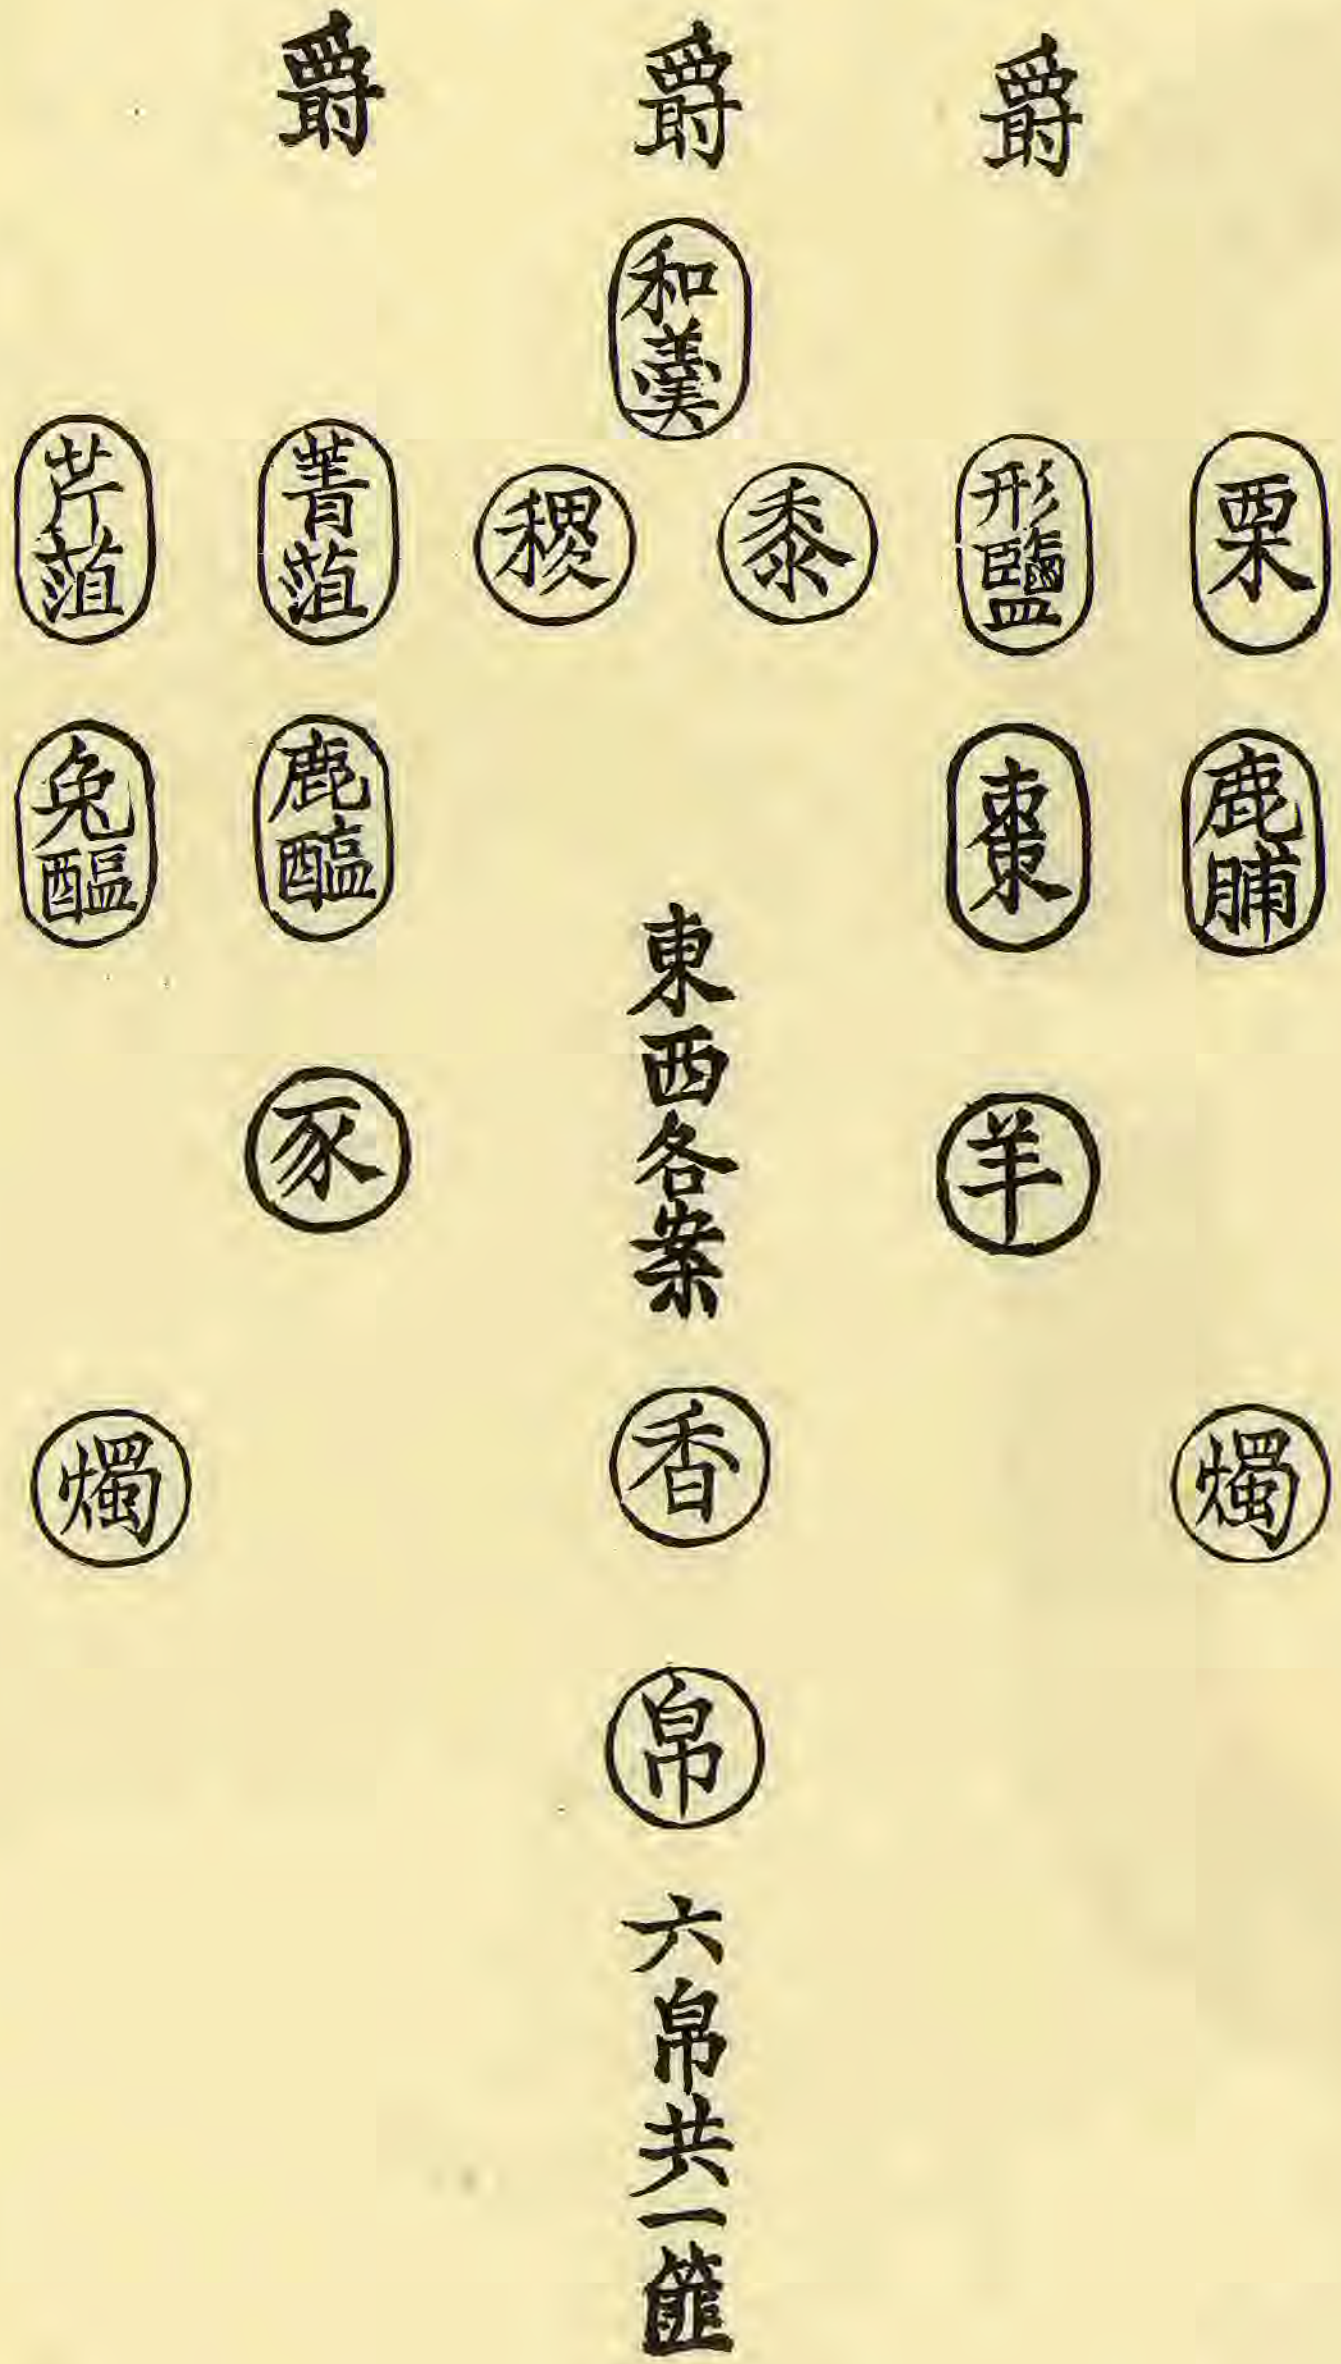 爵
爵
爵
和羹
栗
形鹽
黍
稷
菁菹
芹菹
鹿脯
棗
鹿醢
兔醢
東西各案
羊
豕
燭
香
燭
帛
六帛共一篚